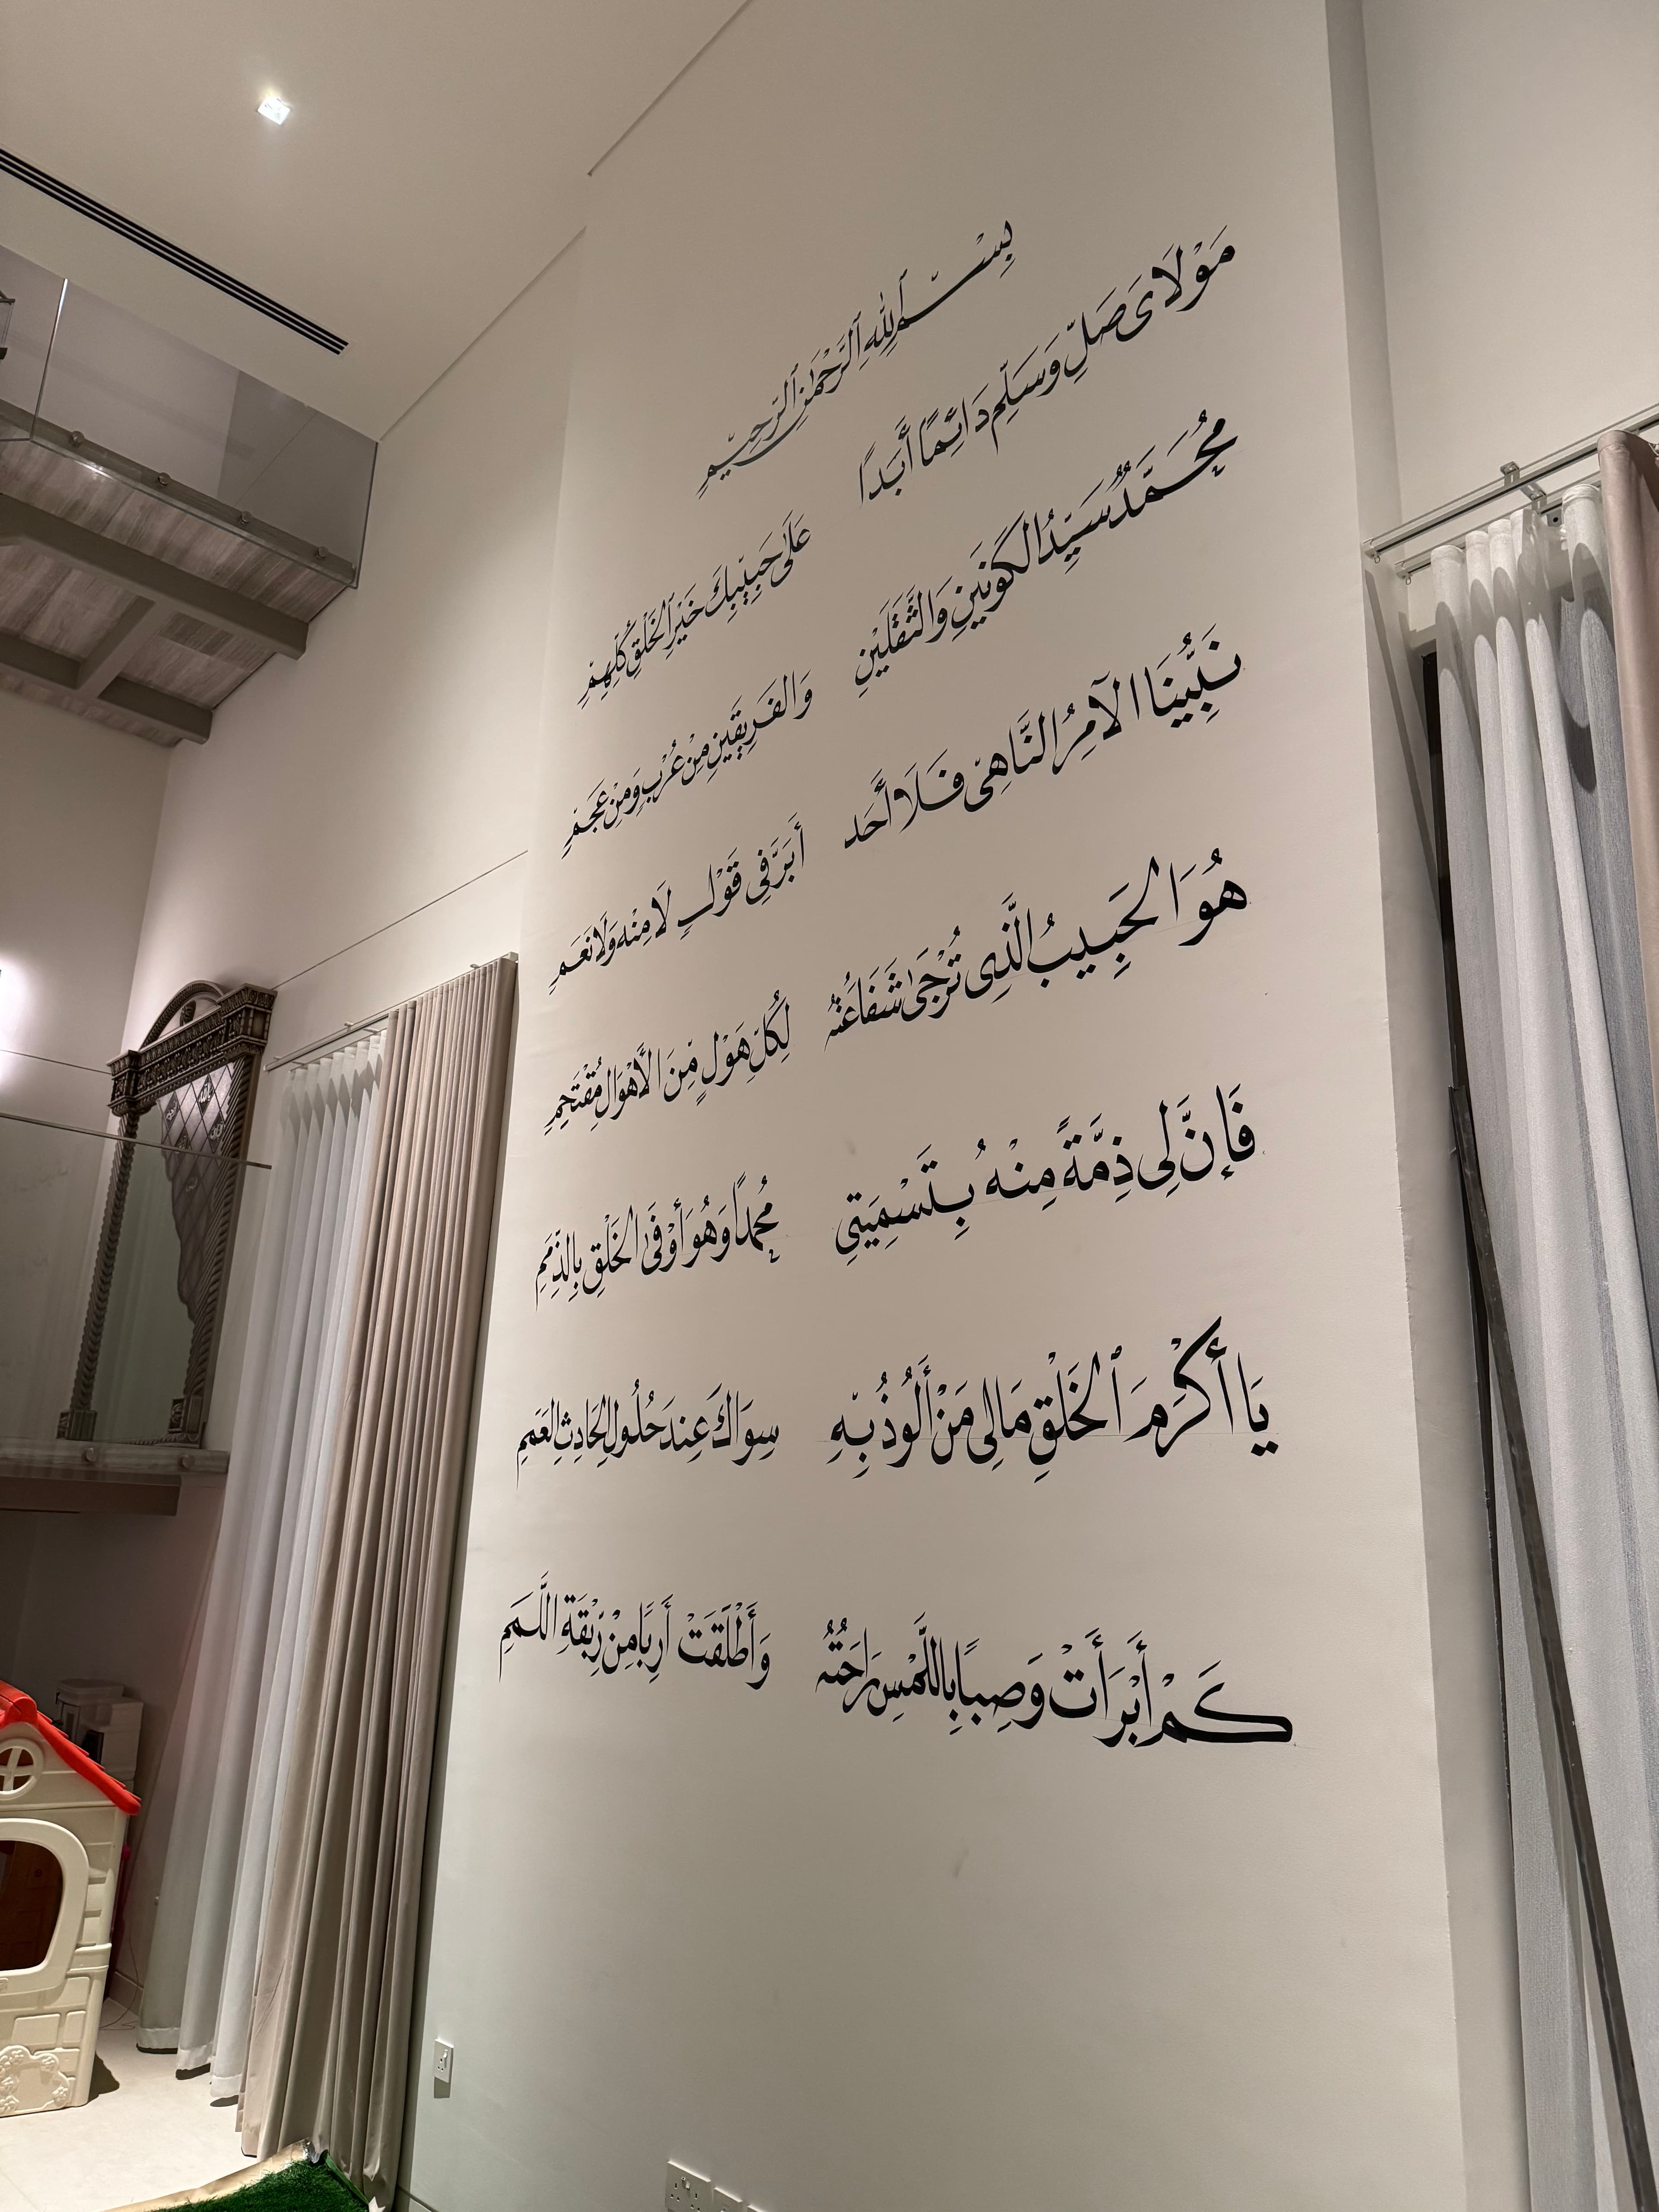 بِسْمِ ٱللهِ ٱلرَّحْمٰنِ ٱلرَّحِيمِ
مَوْلَاىَ صَلِّ وَسَلِّمْ دَائِمًا أَبَدًا عَلَى حَبِيبِكَ خَيْرِ الْخَلْقِ كُلِّهِمْ
مُحَمَّدٌ سَيِّدُ الكَوْنَيْنِ وَالثَّقَلَيْنِ وَالفَرِيقَيْنِ مِنْ عُرْبٍ وَمِنْ عَجَمِ
نَبِيُّنَا الآمِرُ النَّاهِى فَلَا أَحَد أَبَرَّ فِى قَوْلِ لَا مِنْه وَلَا نَعَمِ
هُوَ الْحَبِيبُ الَّذِى تُرْجَىٰ شَفَاعَتُهُ لِكُلِّ هَوْلٍ مِنَ الأَهْوَالِ مُقْتَحِمِ
فَإِنَّ لِى ذِمَّةً مِنْهُ بِتَسْمِيَتِي مُحَمَّدًا وَهُوَ أَوْفَى الْخَلْقِ بِالذِّمَمِ
يَا أَكْرَمَ ٱلْخَلْقِ مَالِى مَنْ أَلُوذُ بِهِ سِوَاكَ عِندَ حُلُولِ الْحَادِثِ العَمَمِ
كَمْ أَبْرَأَتْ وَصِبًا بِاللَّمْسِ رَاحَتُهُ وَأَطْلَقَتْ أَرِبًا مِنْ رِبْقَةِ اللَّمَمِ